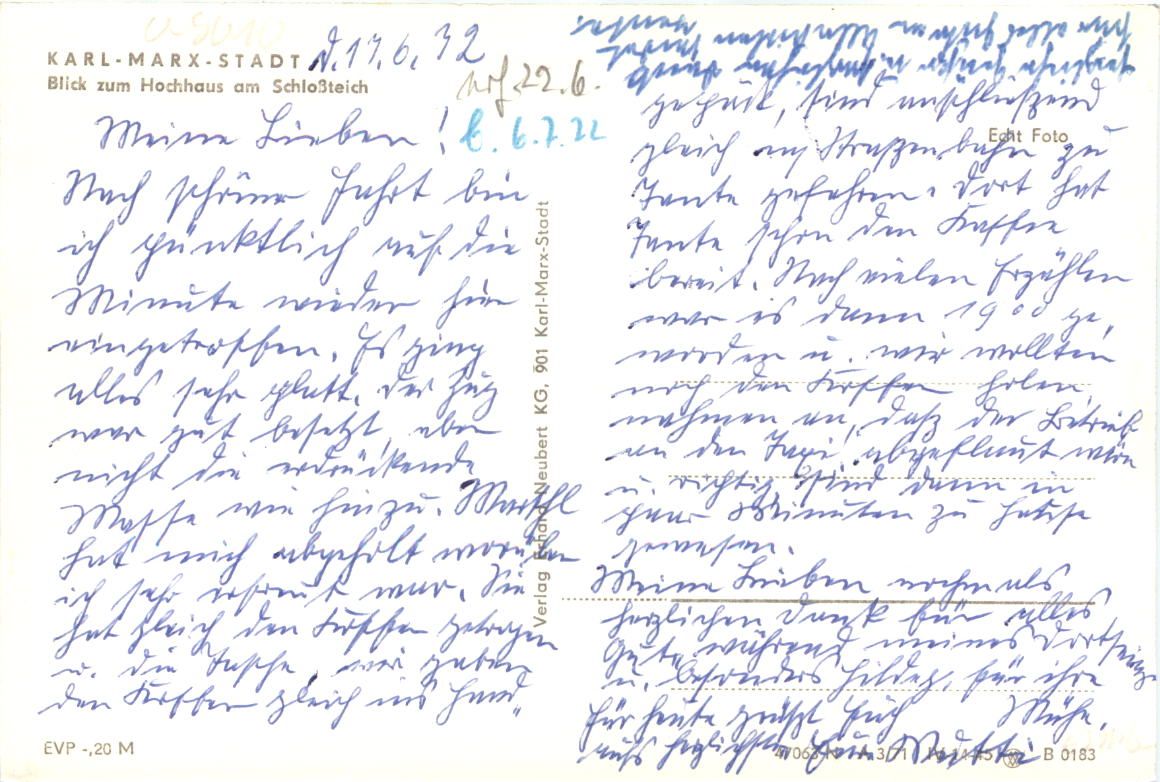 KARL-MARX-STADT
Blick zum Hochhaus am Schloßteich
d. 17.6.72
22.6.
b. 6.7.72
Echt Foto
Meine Lieben!
Nach schöner Fahrt bin
ich pünktlich auf die
Minute wieder hier
eingetroffen. Es ging
alles sehr glatt. Der Zug
war gut besetzt, aber
nicht die erdrückende
Masse wie hinzu.
hat mich abgeholt worüber
ich sehr erfreut war. Sie
hat gleich den Koffer getragen
u. die Tasche, wir gaben
den Koffer gleich ins Hand„
gepäck, sind anschließend
gleich mit Straßenbahn zu
Tante gefahren. Dort hat
Tante schon den Kaffee
bereit. Nach vielen Erzählen
war es dann 19 00 ge„
worden u. wir wollten
noch den Koffer holen
nahmen an, daß der Betrieb
an den Taxi abgeflaut wäre
u. richtig sind dann in
paar Minuten zu Hause
gewesen.
Meine Lieben nochmals
herzlichen Dank für alles
Gute während meines Dortseins
u. besonders Hildeg. für ihre
Mühe.
Für heute grüßt Euch
aufs herzlichste Eure Mutti
Verlag Erhard Neubert KG, 901 Karl-Marx-Stadt
EVP -,20 M
B 0183